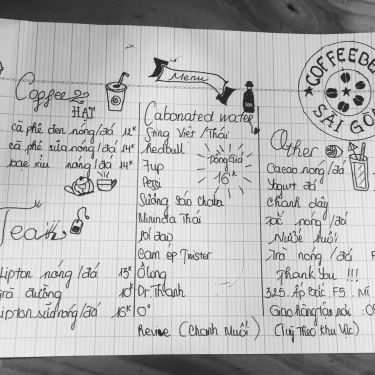 Menu
COFFEEBE
SÀI GÒN
Coffee
HẠT
cà phê đen nóng/đá 12K
cà phê sữa nóng/đá 14K
bạc xỉu nóng/đá 14K
Tea
Lipton nóng/đá 13K
trà đường 10K
Lipton sữa nóng/đá 16K
Cabonated water
String Việt/Thái
Redbull
7up
Pepsi
Sương Sáo
Mirinda Thái
Cam ép Twister
Ôlong
Dr. Thanh
0°
Revive (Chanh Muối)
Đồng Giá
16K
Other
Cacao nóng/đá
Yogurt đá
Chanh dây
Tắc nóng/đá
Nước suối
Trà nóng/đá
Thank You !!!
325. Ấp Bắc F5. Mỹ
Giao hàng tận nơi: 0
(Tuỳ Theo Khu Vực)